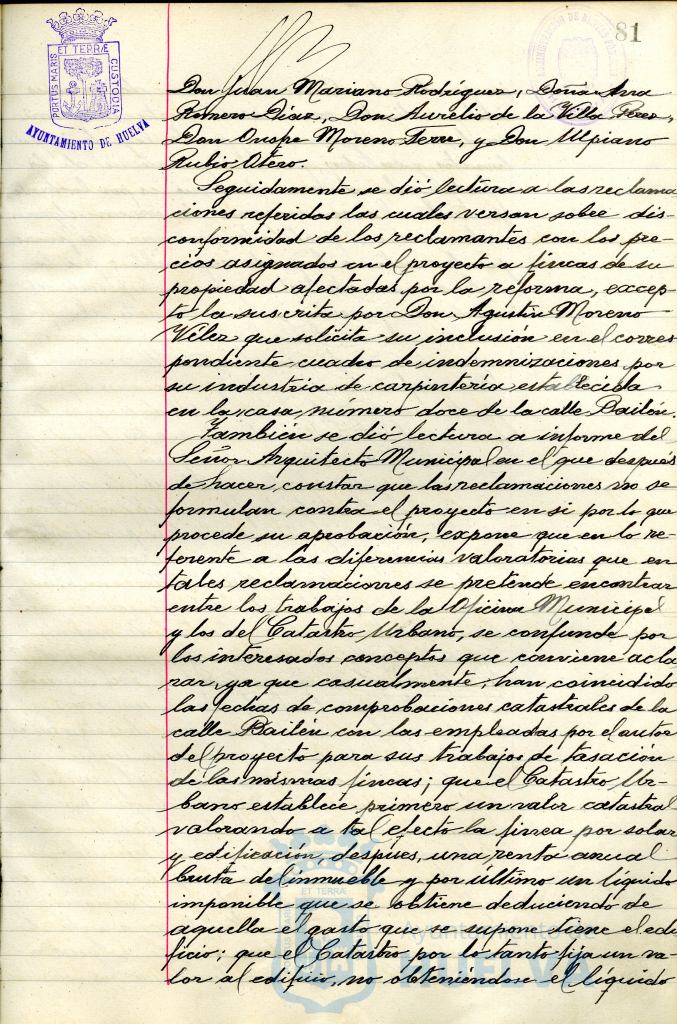 81
PORTUS MARIS ET TERRÆ CUSTODIA
AYUNTAMIENTO DE HUELVA
Don Juan Mariano Rodríguez, Doña Ana
Romero Díaz, Don Aurelio de la Villa Perez,
Don Onofre Moreno Terre, y Don Ulpiano
Rubio Otero.
Seguidamente se dió lectura a las reclama
ciones referidas las cuales versan sobre dis-
conformidad de los reclamantes con los pre-
cios asignados en el proyecto a fincas de su
propiedad afectadas por la reforma, excep-
to la suscrita por Don Agustín Moreno
Vélez que solicita su inclusión en el corres
pondiente cuadro de indemnizaciones por
su industria de carpintería establecida
en la casa número doce de la calle Bailén.
También se dió lectura a informe del
Señor Arquitecto Municipal en el que después
de hacer constar que las reclamaciones no se
formulan contra el proyecto en si por lo que
procede su aprobación, expone que en lo re-
ferente a las diferencias valoratorias que en
tales reclamaciones se pretende encontrar
entre los trabajos de la Oficina Municipal
y los del Catastro Urbano, se confunde por
los interesados conceptos que conviene acla
rar, ya que casualmente, han coincidido
las fechas de comprobaciones catastrales de la
calle Bailén con las empleadas por el autor
del proyecto para sus trabajos de tasación
de las mismas fincas; que el Catastro Ur-
bano establece primero un valor catastral
valorando a tal efecto la finca por solar
y edificación, después, una renta anual
bruta del inmueble y por último un líquido
imponible que se obtiene deduciendo de
aquella el gasto que se supone tiene el edi
ficio; que el Catastro por lo tanto fija un va-
lor al edificio, no obteniéndose el líquido
Ayuntamiento de
HUELVA